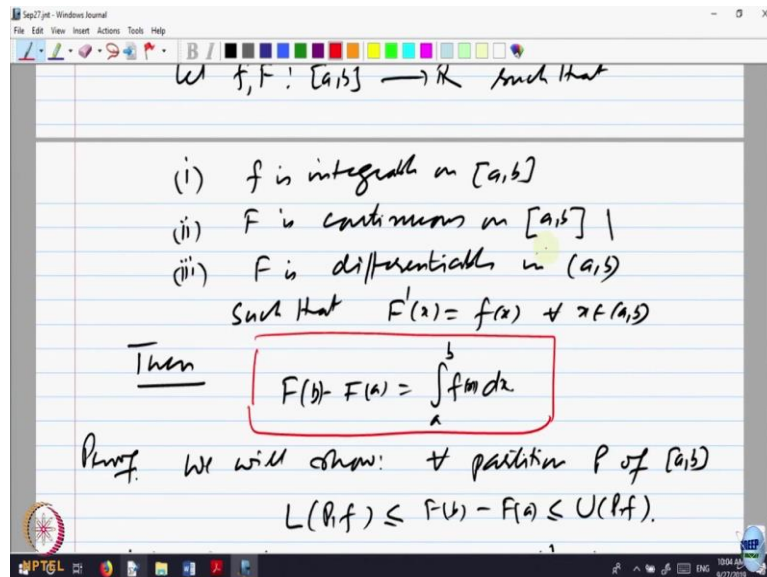 Sep27.jnt - Windows Journal
File Edit View Insert Actions Tools Help
B I
Let f, F : [a,b] → R such that
(i) f is integrable on [a,b]
(ii) F is continuous on [a,b]
(iii) F is differentiable in (a,b)
such that F'(x) = f(x) ∀ x ∈ (a,b)
Then
F(b) - F(a) = ∫_a^b f(x) dx
Proof. We will show: ∀ partition P of [a,b]
L(P,f) ≤ F(b) - F(a) ≤ U(P,f).
NPTEL
ENG
10:04 AM
9/27/2019